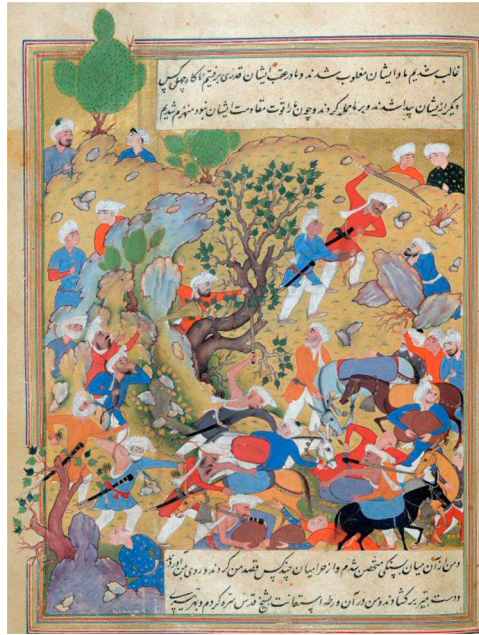 غالب شدیم ما و ایشان مغلوب شدند و ما در عقب ایشان قدری برفتیم ناکاه چهل کس
دیگر از ایشان پیدا شدند و بر ما حمله کردند و چون ما را قوت مقاومت ایشان نبود منهزم شدیم
و من از آن میان بسنکی متحصن شدم و از حرامیان چند کس قصد من کردند و روی بمن آوردند
و دست بتیر بر کشادند و من در آن ورطه استعانت بشیخ قدس سره کردم و